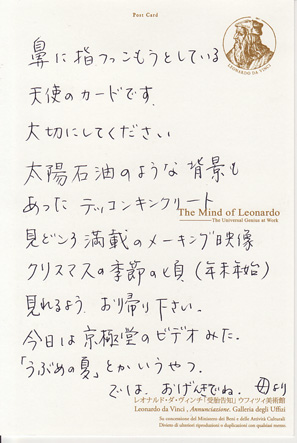 Post Card
LEONARDO DA VINCI
鼻に指つっこもうとしている
天使のカードです.
大切にしてください
太陽石油のような背景も
あった デッコンキンクリート
The Mind of Leonardo
The Universal Genius at Work
見どころ満載のメーキング映像
クリスマスの季節の頃(年末年始)
見れるよう、お帰り下さい.
今日は京極堂のビデオみた.
「うぶめの夏」とかいうやつ.
では. おげんきでね. 母より
レオナルド・ダ・ヴィンチ「受胎告知」ウフィツィ美術館
Leonardo da Vinci , Annunciazione. Galleria degli Uffizi
Su concessione del Ministero dei Beni e delle Attività Culturali
Divieto di ulteriori riproduzioni e duplicazioni con qualsiasi mezzo